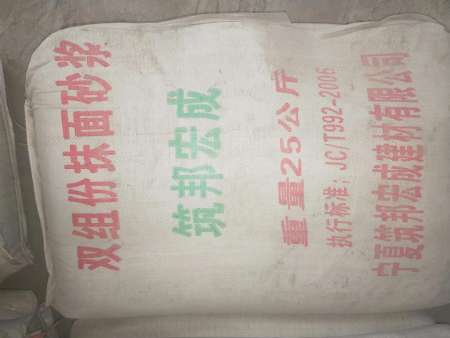 双组份抹面砂浆
筑邦宏成
重量25公斤
执行标准：JC/T992-2006
宁夏筑邦宏成建材有限公司